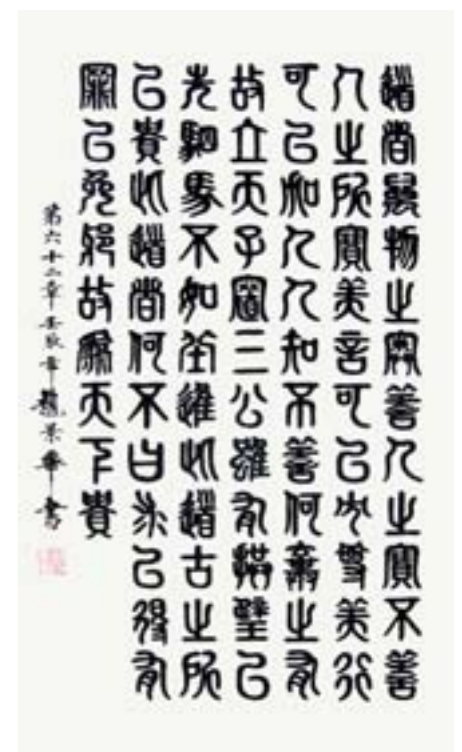 道者萬物之奧善人之寶不善
人之所寶美言可以市尊美行
可以加人人知不善何棄之有
故立天子置三公雖有拱璧以
先駟馬不如坐進此道古之所
以貴此道者何不曰求以得有
罪以免邪故為天下貴
第六十二章景華書